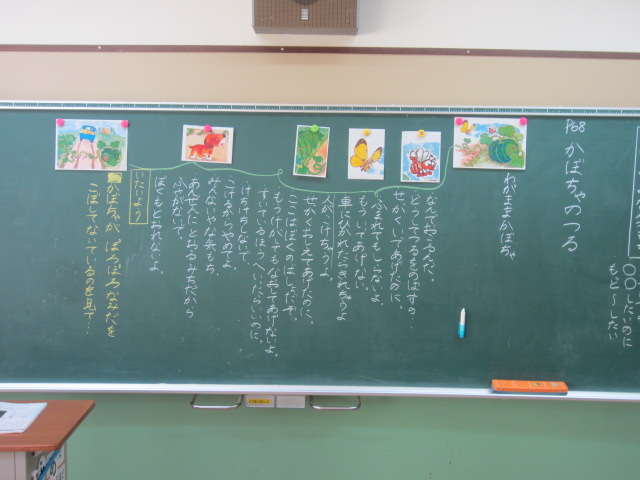 ○○したいのに
もっと～したい
P68 かぼちゃのつる
わがままかぼちゃ
なんでおこるんだ。
どうしてつるをのばすの…
せっかくいてあげたのに。
ふまれてもしらないよ。
もういてあげない
車にひかれたらきれちゃうよ
人がつけちゃうよ。
せっかくおしえてあげたのに。
ここはぼくのはしただぞ。
もうけがしてもなおしてあげないよ。
すいているほうへいったらいいのに。
けちけちしないで。
こまるからやめてよ。
みんないやな気もち。
あんぜんにとおるみちだから
ふさがないで。
ぼくもとおれないよ。
たいよう
かぼちゃが ぽろぽろなみだを
こぼしてないているのを見て…